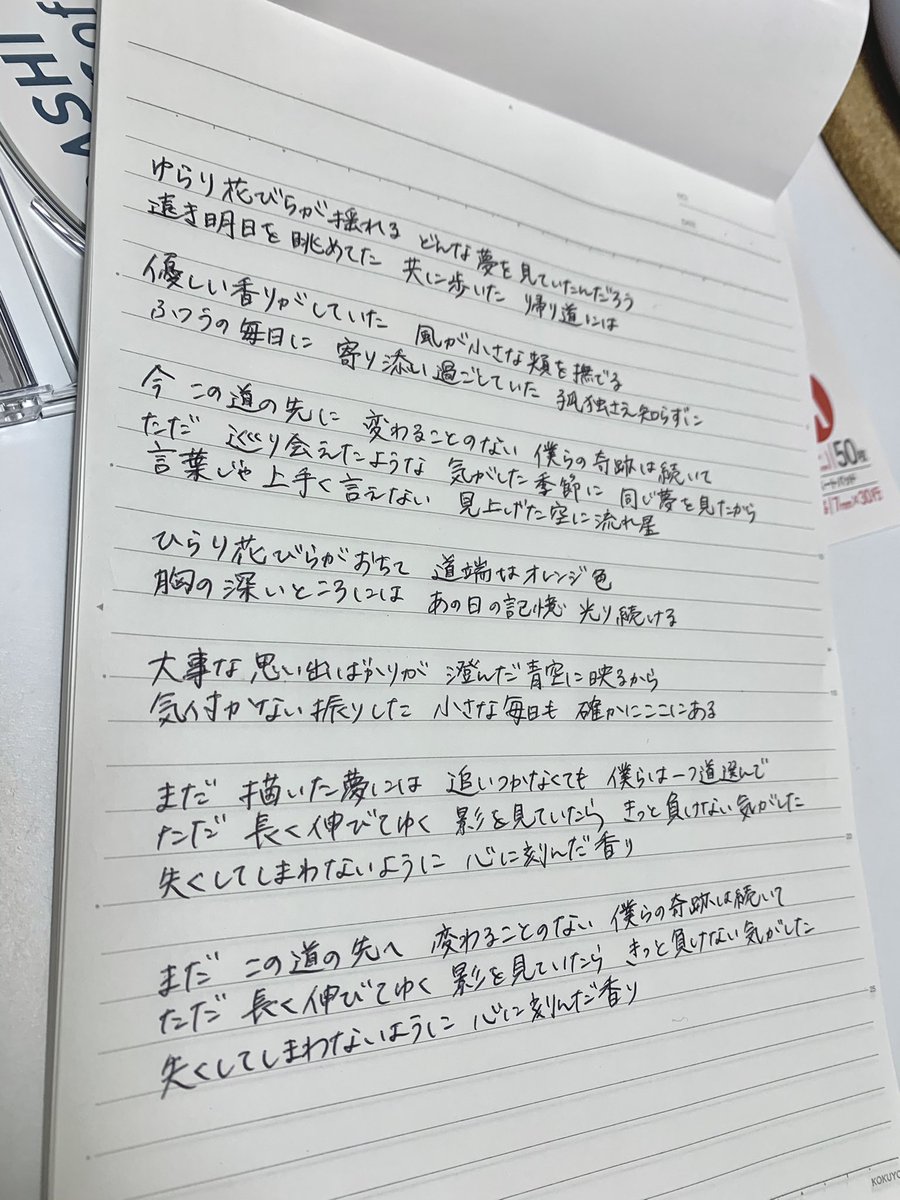 IHSA
of
DATE
ゆらり花びらが揺れる どんな夢を見ていたんだろう
遠き明日を眺めてた 共に歩いた 帰り道には
優しい香りがしていた 風が小さな頬を撫でる
ふつうの毎日に 寄り添い過ごしていた 孤独さえ知らずに
今 この道の先に 変わることのない 僕らの奇跡は続いて
ただ 巡り会えたような 気がした季節に 同じ夢を見たから
言葉じゃ上手く言えない 見上げた空に流れ星
ひらり花びらがおちて 道端はオレンジ色
胸の深いところには あの日の記憶 光り続ける
大事な思い出ばかりが 澄んだ青空に映るから
気付かない振りした 小さな毎日も 確かにここにある
まだ 描いた夢には 追いつかなくても 僕らは一つ道選んで
ただ 長く伸びてゆく 影を見ていたら きっと負けない気がした
失くしてしまわないように 心に刻んだ香り
まだ この道の先へ 変わることのない 僕らの奇跡は続いて
ただ 長く伸びてゆく 影を見ていたら きっと負けない気がした
失くしてしまわないように 心に刻んだ香り
50枚
7mm×30行
KOKUYO